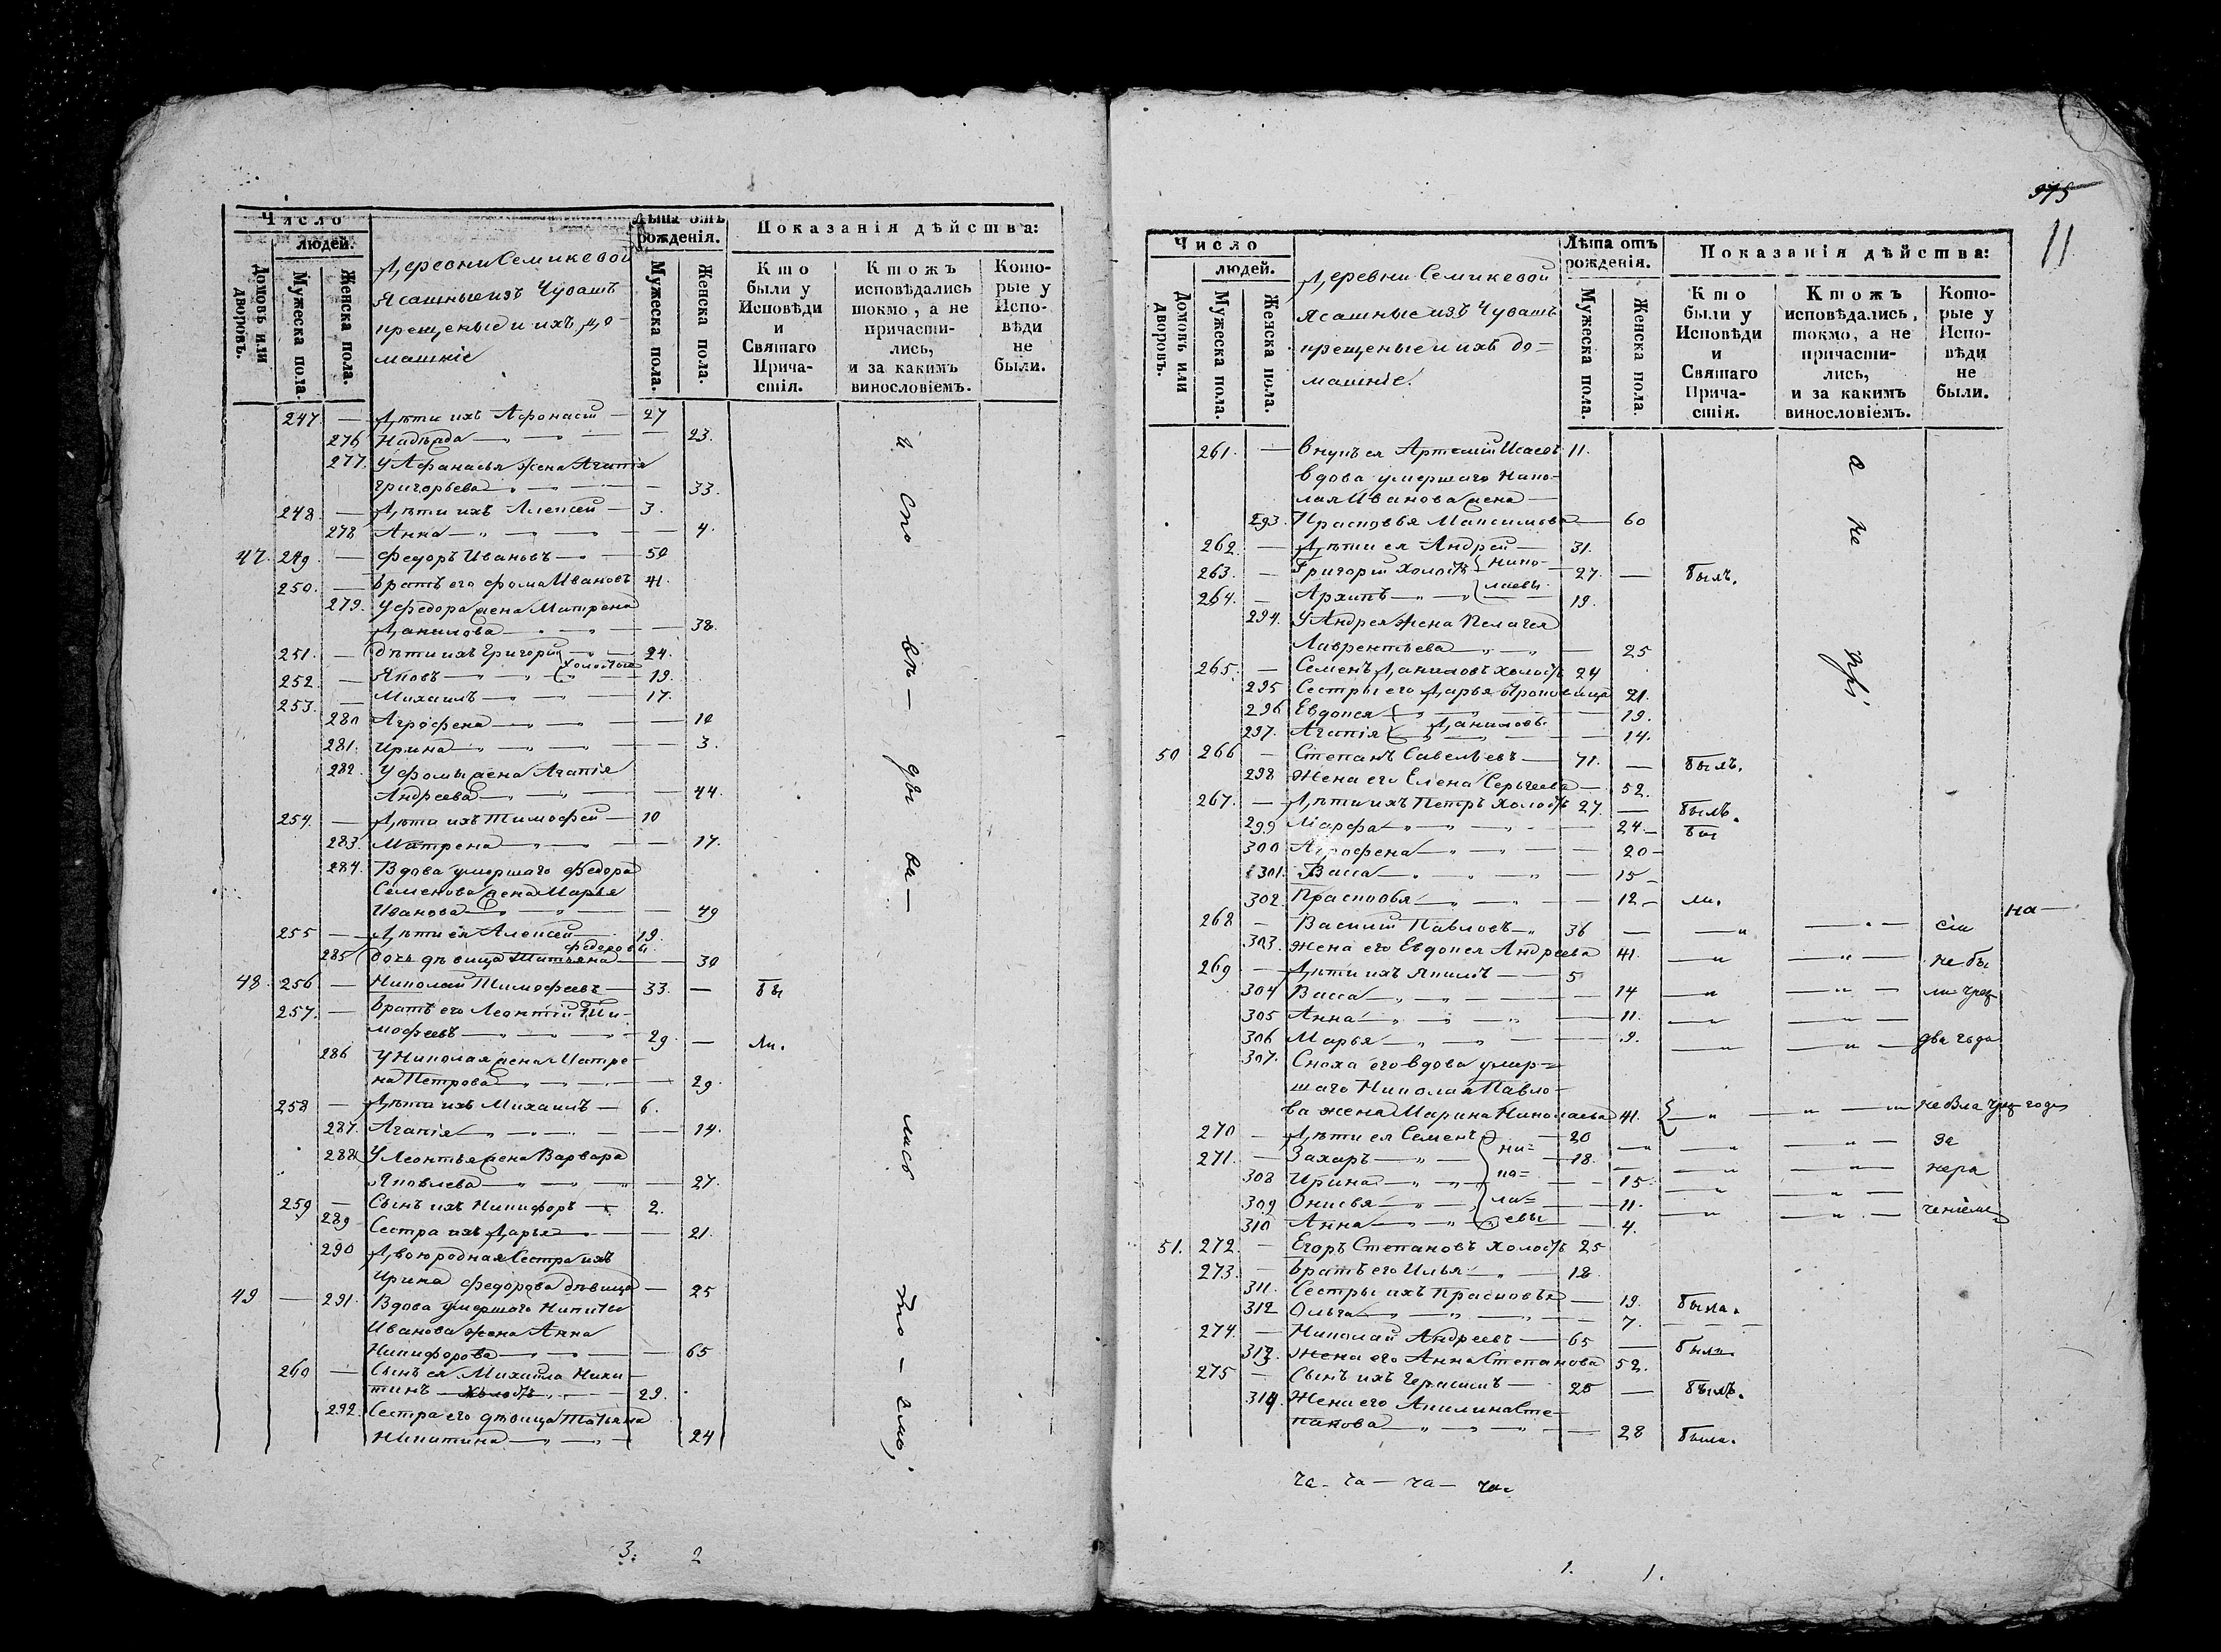 Число
людей.
Домовъ или дворовъ.
Мужеска пола.
Женска пола.
Деревни Семикевой
Ясашные изъ Чувашъ
крещеные и ихъ до-
машніе
Лѣта отъ рожденія.
Мужеска пола.
Женска пола.
Показанія дѣйства:
Кто были у Исповѣди и Святаго Прича-стія.
Ктожъ исповѣдались токмо, а не причасти-лись, и за какимъ винословіемъ.
Кото-рые у Испо-вѣди не были.
247. — Дѣти ихъ Афонасій — 27
276 Надежда — 23.
277. У Афанасья жена Агапія
Григорьева — 33.
248. — Дѣти ихъ Алексей — 3.
278 Анна — 4.
47. 249 — Федоръ Ивановъ — 50
250. — Братъ его Фома Ивановъ 41.
279. У Федора жена Матрена
Данилова — 38.
251. — Дѣти ихъ Григорій — 24.
холостые
252. — Яковъ — 19.
253. — Михаилъ — 17.
280 Агрофена — 10
281. Ирина — 3.
282. У Фомы жена Агапія
Андреева — 44.
254. — Дѣти ихъ Тимофей — 10
283. Матрена — 17.
284. Вдова умершаго Федора
Семенова жена Марья
Иванова — 49
255 — Дѣти ея Алексей — 19.
Федоровы
285 дочь дѣвица Татьяна — 30
48. 256 — Николай Тимофеевъ — 33. — бы
257. — Братъ его Леонтій Ти-
мофеевъ — 29. — ли.
286 У Николая жена Матре-
на Петрова — 29.
258 — Дѣти ихъ Михаилъ — 6.
287. Агапія — 14.
288 У Леонтья жена Варвара
Яковлева — 27.
259 — Сынъ ихъ Никифоръ — 2.
289 Сестра ихъ Дарья — 21.
290 Двоюродная Сестра ихъ
Ирина Федорова дѣвица — 25
49 — 291. Вдова умершаго Никиты
Иванова жена Анна
Никифорова — 65
260 — Сынъ ея Михайла Ники-
тинъ — холостъ — 29.
292. Сестра его дѣвица Татьяна
Никитина — 24
и спо вѣ — ды ва — лись то — кмо,
3. 2
375
11
Число
людей.
Домовъ или дворовъ.
Мужеска пола.
Женска пола.
Деревни Семикевой
Ясашные изъ Чувашъ
крещеные и ихъ до=
машніе.
Лѣта отъ рожденія.
Мужеска пола.
Женска пола.
Показанія дѣйства:
Кто были у Исповѣди и Святаго Прича-стія.
Ктожъ исповѣдались, токмо, а не причасти-лись, и за какимъ винословіемъ.
Кото-рые у Испо-вѣди не были.
261. — Внукъ ея Артемій Исаевъ 11.
Вдова умершаго Нико-
лая Иванова жена —
293. Прасковья Максимова — 60
262. — Дѣти ея Андрей — 31.
263. — Григорій холостъ Нико- 27. — былъ.
264. — Архипъ — лаевы 19.
294. У Андрея жена Пелагея
Лаврентьева — 25
265. — Семенъ Даниловъ холостъ 24
295 Сестры его Дарья 21.
296 Евдокея — 19.
297. Агапія Даниловы — 14.
50 266 — Степанъ Савельевъ — 71. — былъ.
298 Жена его Елена Сергеева — 52.
267. — Дѣти ихъ Петръ холостъ 27. — былъ.
299 Марфа — 24 — бы
300 Агрофена — 20 —
301. Васса — 15 —
302. Прасковья — 12 — ли.
268 — Василій Павловъ — 36 — сіи на —
303. Жена его Евдокея Андреева 41. — не бы
269 — Дѣти ихъ Якимъ — 5 — ли чрез
304 Васса — 14
305 Анна — 11. — два года
306 Марья — 9.
307. Сноха его вдова умер=
шаго Николая Павло-
ва жена Марина Николаева 41. — не была чрез годъ
270 — Дѣти ея Семенъ — 20 — за
271. — Захаръ — Ни= 18. — нера
308 Ирина — ко= 15.
309 Онисья — ла= 11. —ченіемъ
310 Анна — евы 4.
51. 272. — Егоръ Степановъ холостъ 25
273. — Братъ его Илья — 18.
311. Сестры ихъ Прасковья — 19. была.
312 Ольга — 7.
274. — Николай Андреевъ — 65 — были.
313. Жена его Анна Степанова 52.
275 — Сынъ ихъ Герасимъ — 25 — былъ.
314. Жена его Акилина Сте-
панова — 28 была.
а не при
ча- ча — ча — ча
1. 1.